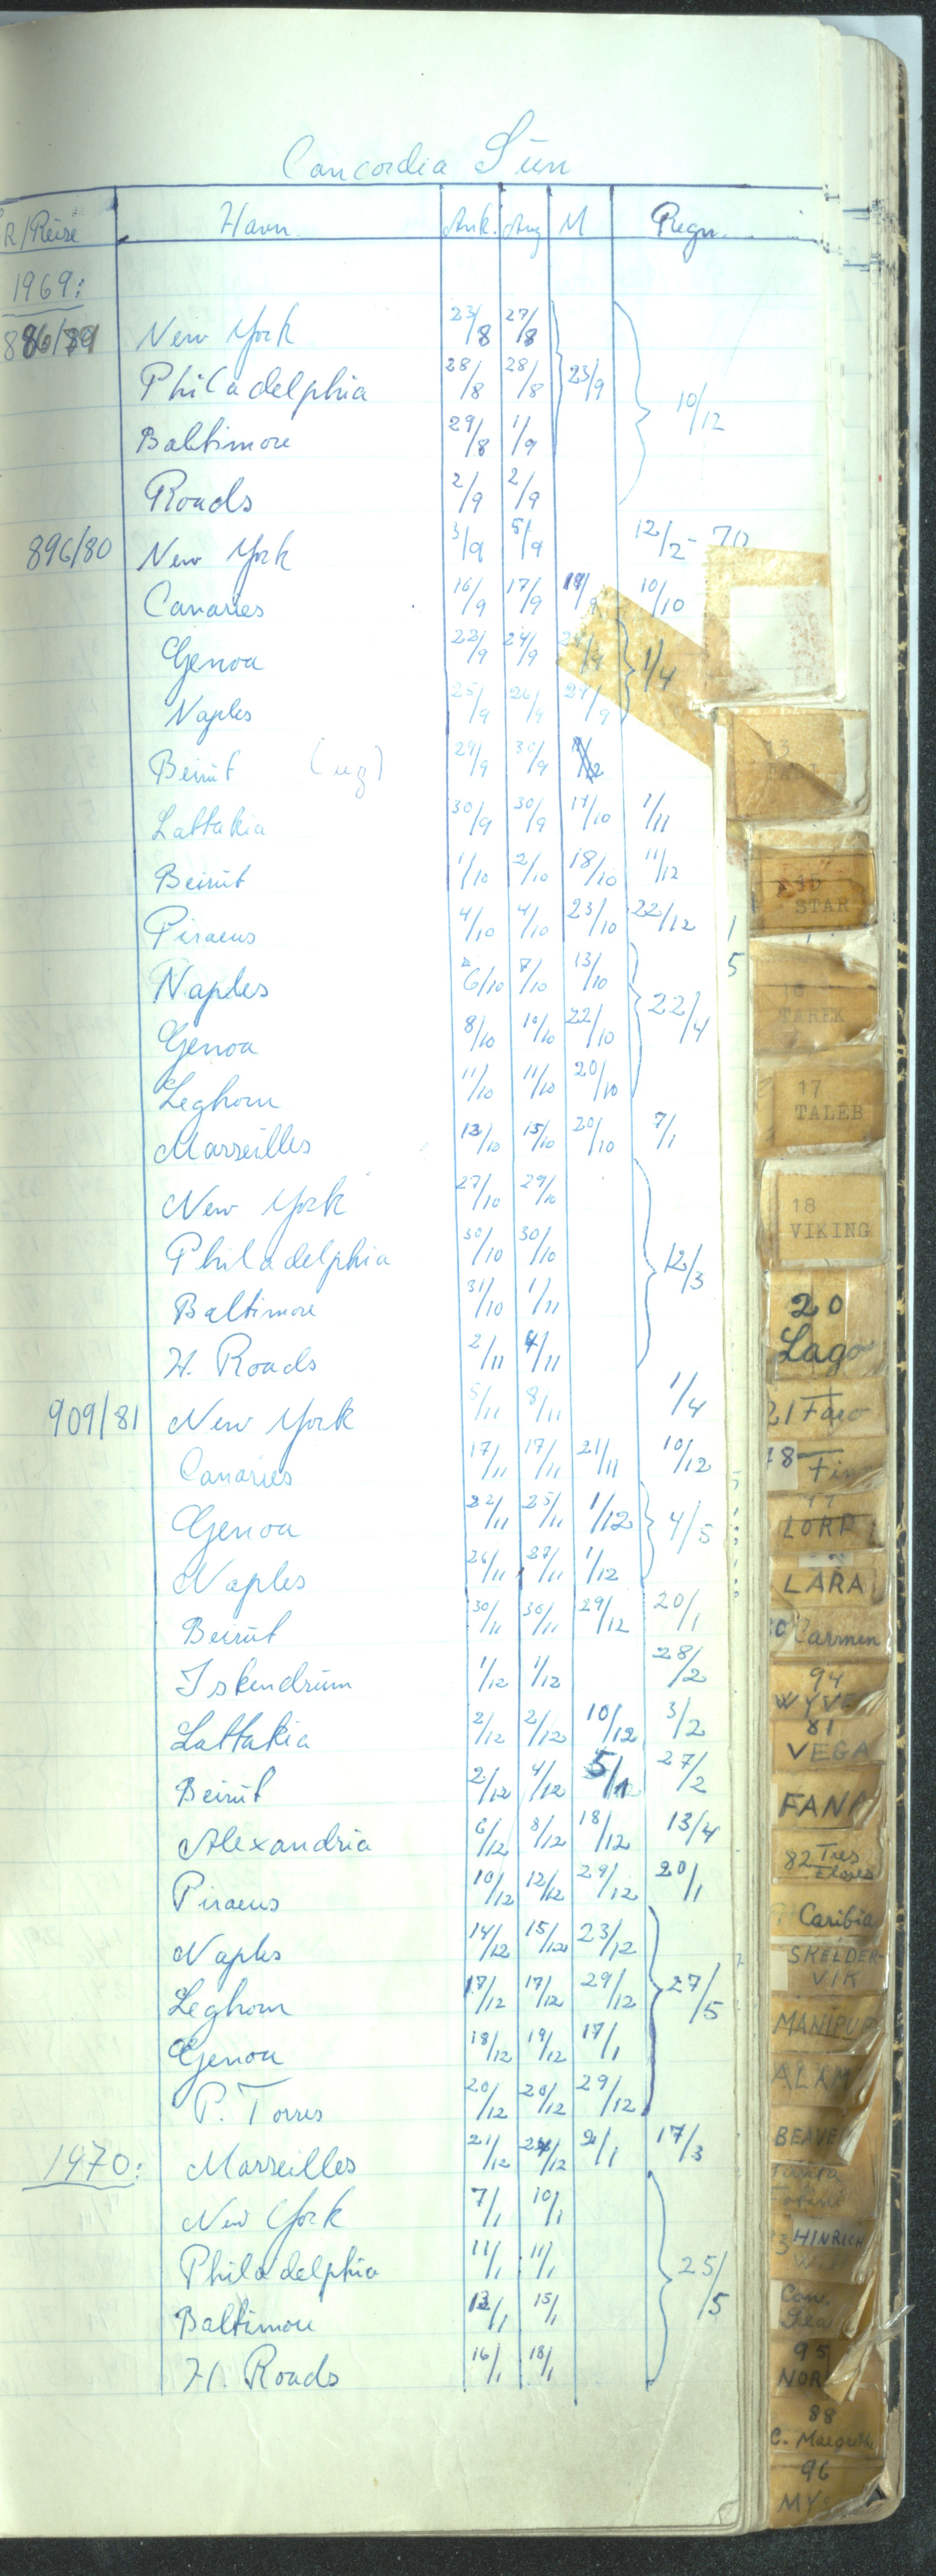 Concordia Sün
R/Reise Havn Ank. Avg M Regn.
1969:
New York 23/8 27/8
Philadelphia 28/8 28/8 23/9 10/12
Baltimore 29/8 1/9
Roads 2/9 2/9
896/80 New York 3/9 5/9 12/2 - 70
Canaries 16/9 17/9 10/10
Genoa 22/9 24/9 1/4
Naples 25/9 26/9 29/9
Beirut (ug) 29/9 30/9
Lattakia 30/9 30/9 17/10 1/11
Beirut 1/10 2/10 18/10 11/12
Piraeus 4/10 4/10 23/10 22/12
Naples 6/10 7/10 13/10 22/4
Genoa 8/10 10/10 22/10
Leghorn 11/10 11/10 20/10
Marseilles 13/10 15/10 20/10 7/1
New York 27/10 29/10
Philadelphia 30/10 30/10 12/3
Baltimore 31/10 1/11
H. Roads 2/11 4/11
909/81 New York 5/11 8/11 1/4
Canaries 17/11 17/11 21/11 10/12
Genoa 22/11 25/11 1/12 4/5
Naples 26/11 27/11 1/12
Beirut 30/11 30/11 29/12 20/1
Iskendrum 1/12 1/12 28/2
Lattakia 2/12 2/12 10/12 3/2
Beirut 2/12 4/12 5/1 27/2
Alexandria 6/12 8/12 18/12 13/4
Piraeus 10/12 12/12 29/12 20/1
Naples 14/12 15/12 23/12
Leghorn 17/12 17/12 29/12 27/5
Genoa 18/12 19/12 17/1
P. Torres 20/12 20/12 29/12
1970: Marseilles 21/12 24/12 2/1 17/3
New York 7/1 10/1
Philadelphia 11/1 11/1 25/5
Baltimore 13/1 15/1
H. Roads 16/1 18/1
13
STAR
TAREK
17
TALEB
18
VIKING
20
Lago
21 Faro
Finn
LORD
LARA
Carmen
94
81
VEGA
82 Tres
Caribia
SKELDER-
VIK
MANIPUR
BEAVE
HINRICH
Con
95
NOR
88
C. Margrethe
96